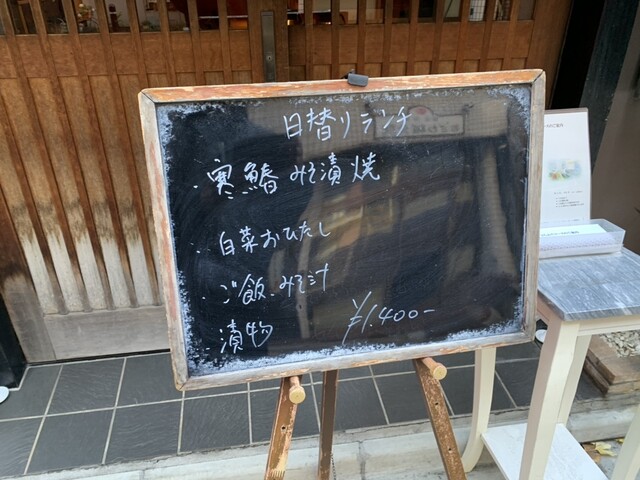 日替りランチ
・寒鰆 みそ漬焼
・白菜おひたし
・ご飯・みそ汁
漬物
¥1.400-